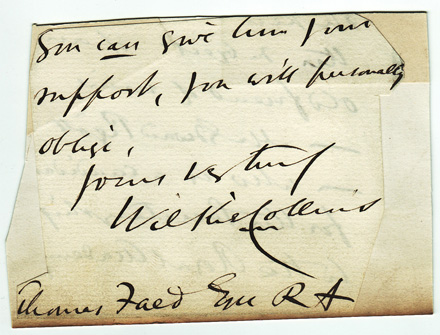 you can give him your
support, you will personally
oblige,
Yours very truly
Wilkie Collins
Thomas Faed Esqre RA